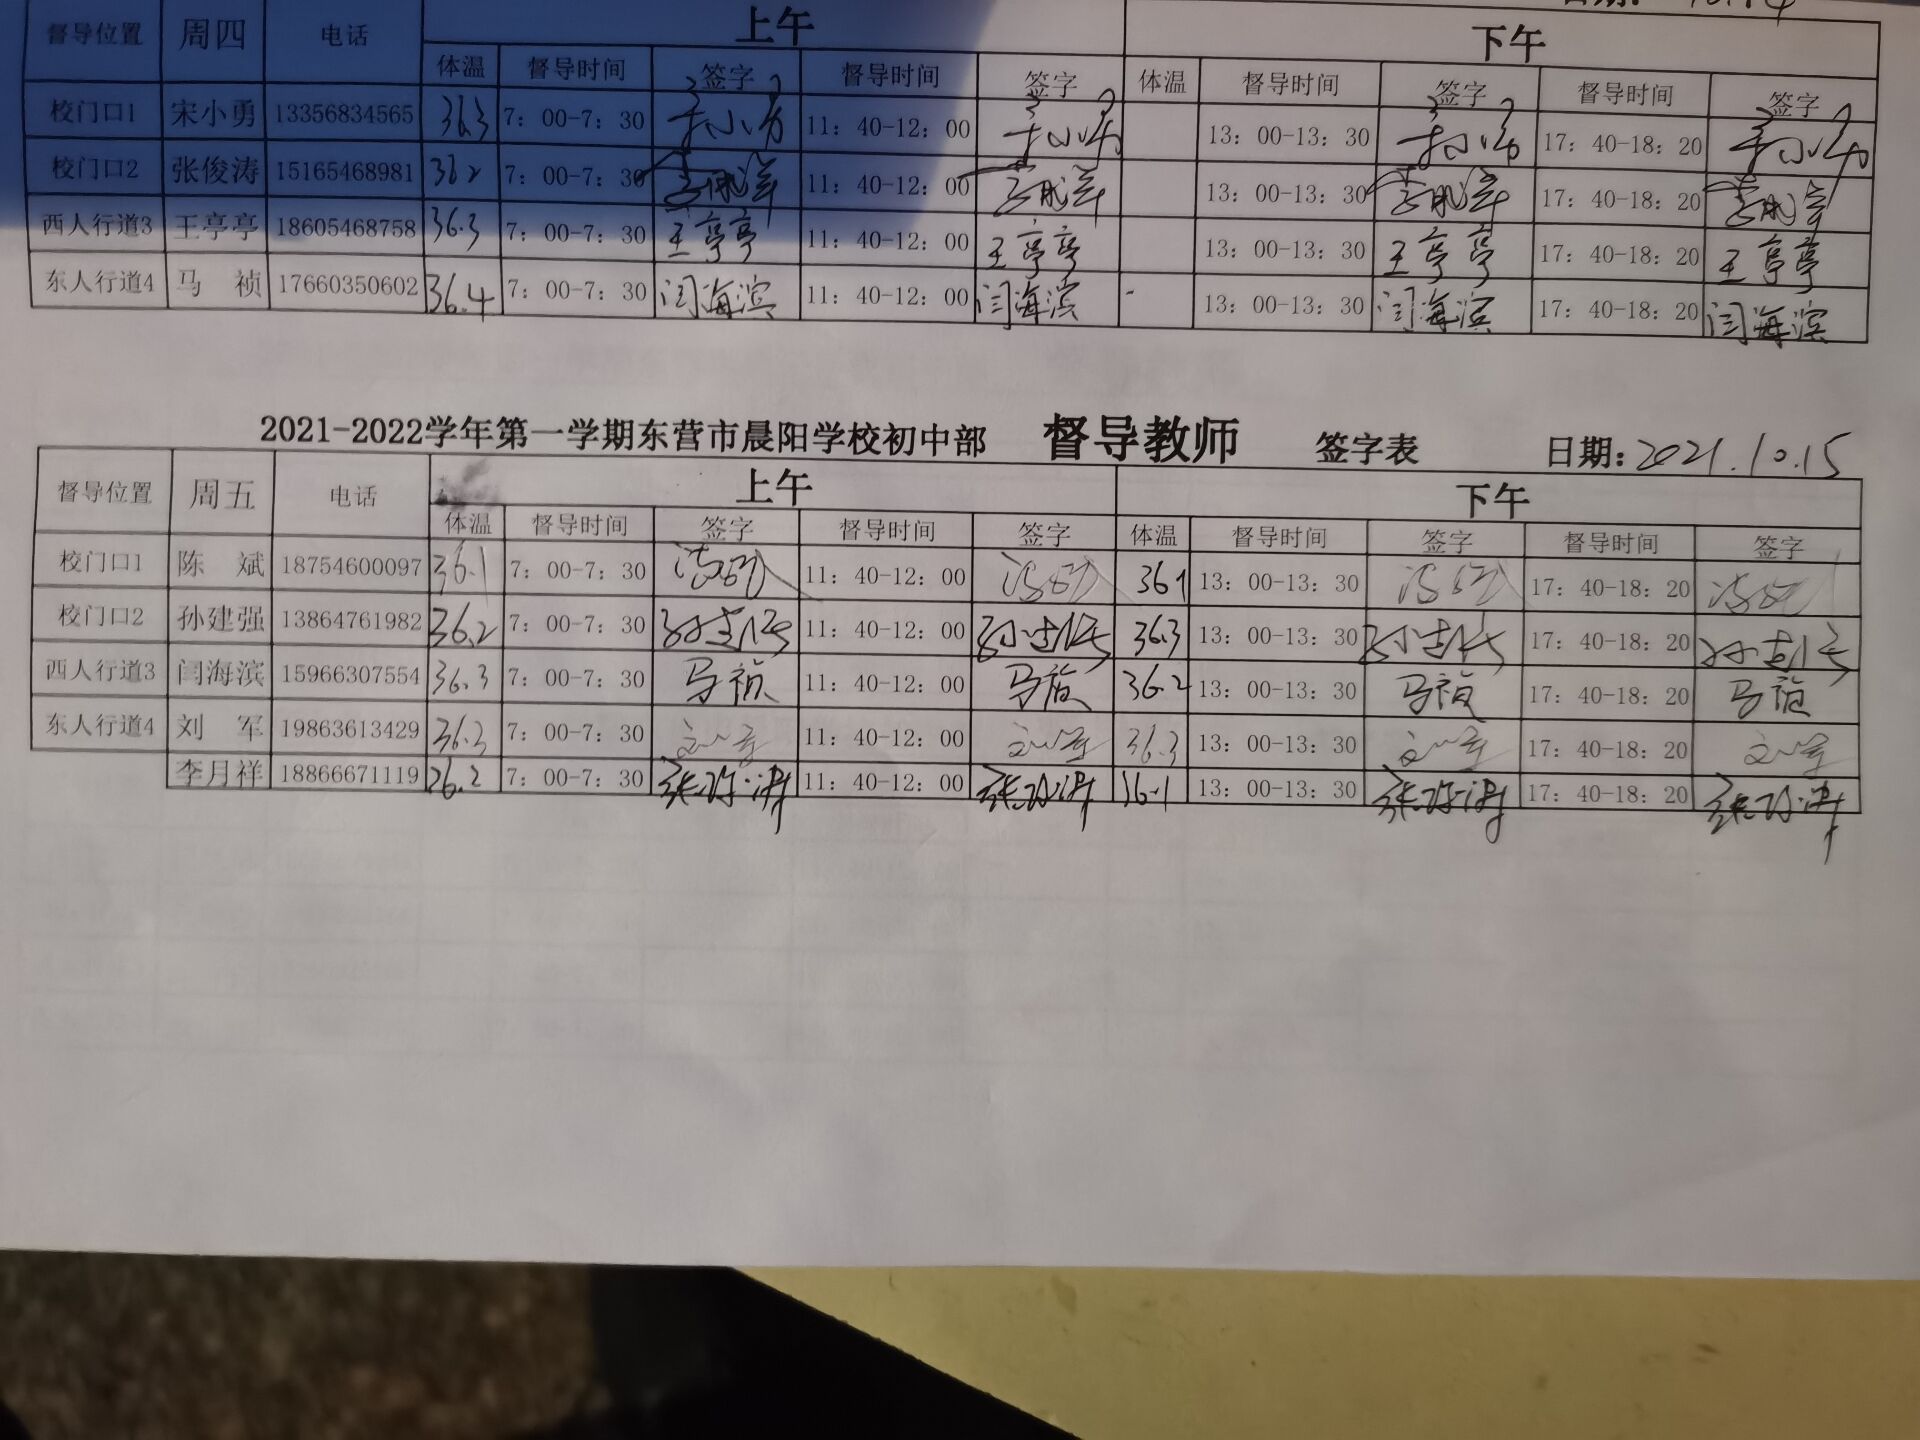 督导位置 周四 电话 上午 下午
体温 督导时间 签字 督导时间 签字 体温 督导时间 签字 督导时间 签字
校门口1 宋小勇 13356834565 36.3 7：00-7：30 11：40-12：00 13：00-13：30 17：40-18：20
校门口2 张俊涛 15165468981 36.2 7：00-7：30 11：40-12：00 13：00-13：30 17：40-18：20
西人行道3 王亭亭 18605468758 36.3 7：00-7：30 王亭亭 11：40-12：00 王亭亭 13：00-13：30 王亭亭 17：40-18：20 王亭亭
东人行道4 马 祯 17660350602 36.4 7：00-7：30 闫海滨 11：40-12：00 闫海滨 13：00-13：30 闫海滨 17：40-18：20 闫海滨
2021-2022学年第一学期东营市晨阳学校初中部 督导教师 签字表 日期：2021.10.15
督导位置 周五 电话 上午 下午
体温 督导时间 签字 督导时间 签字 体温 督导时间 签字 督导时间 签字
校门口1 陈 斌 18754600097 36.1 7：00-7：30 11：40-12：00 36.1 13：00-13：30 17：40-18：20
校门口2 孙建强 13864761982 36.2 7：00-7：30 孙建强 11：40-12：00 孙建强 36.3 13：00-13：30 孙建强 17：40-18：20 孙建强
西人行道3 闫海滨 15966307554 36.3 7：00-7：30 马祯 11：40-12：00 马祯 36.2 13：00-13：30 马祯 17：40-18：20 马祯
东人行道4 刘 军 19863613429 36.3 7：00-7：30 刘军 11：40-12：00 刘军 36.3 13：00-13：30 刘军 17：40-18：20 刘军
李月祥 18866671119 36.2 7：00-7：30 11：40-12：00 36.1 13：00-13：30 17：40-18：20